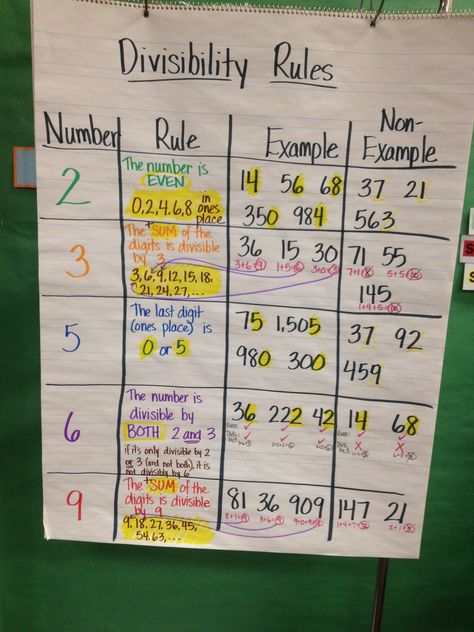 Divisibility Rules
Number Rule Example Non-
Example
2
The number is
EVEN
0,2,4,6,8 in ones place
14 56 68
350 984
37 21
563
3
The SUM of the
digits is divisible
by 3
3, 6, 9, 12, 15, 18,
21, 24, 27, ...
36 15 30
3+6=9 1+5=6 3+0=3
71 55
7+1=8 5+5=10
145
1+4+5=10
5
The last digit
(ones place) is
0 or 5
75 1,505
980 300
37 92
459
6
The number is
divisible by
BOTH 2 and 3
if it's only divisible by 2
or 3 (and not both), it is
not divisibly by 6
36 222 42
Even?
14 68
Even?
9
The SUM of the
digits is divisible
by 9
9, 18, 27, 36, 45,
54, 63, ...
81 36 909
8+1=9 3+6=9 9+0+9=18
147 21
1+4+7=12 2+1=3